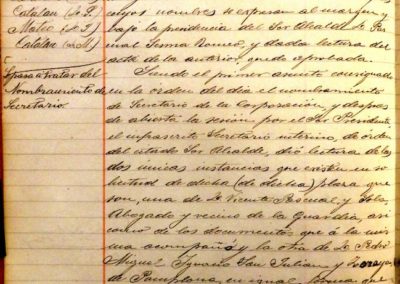 Catalan (D. P.)
Mateo (D. P.)
Catalan (D. M.)
Se pasa a tratar del
Nombramiento de
Secretario.
cuyos nombres se expresan al margen
bajo la presidencia del Sor Alcalde Dn Fer
Serma Romeo, y dada lectura del
acta de la anterior, quedó aprobada.
Siendo el primer asunto consignado
en la orden del dia el nombramiento
de Secretario de la Corporación, y despues
de abierta la sesión por el Sor Presidente
el infrascrito Secretario interino, de orden
del citado Sor Alcalde, dió lectura de las
dos únicas instancias que existen en so
licitud de dicha (de dicha) plaza que
son, una de D. Vicente Pascual y
Abogado y vecino de La Guardia, asi
como de los documentos que á la mis
ma acompaña y la otra de D. Pedro
Miguel Ignacio San Julian y
de Pamplona, en igual forma que